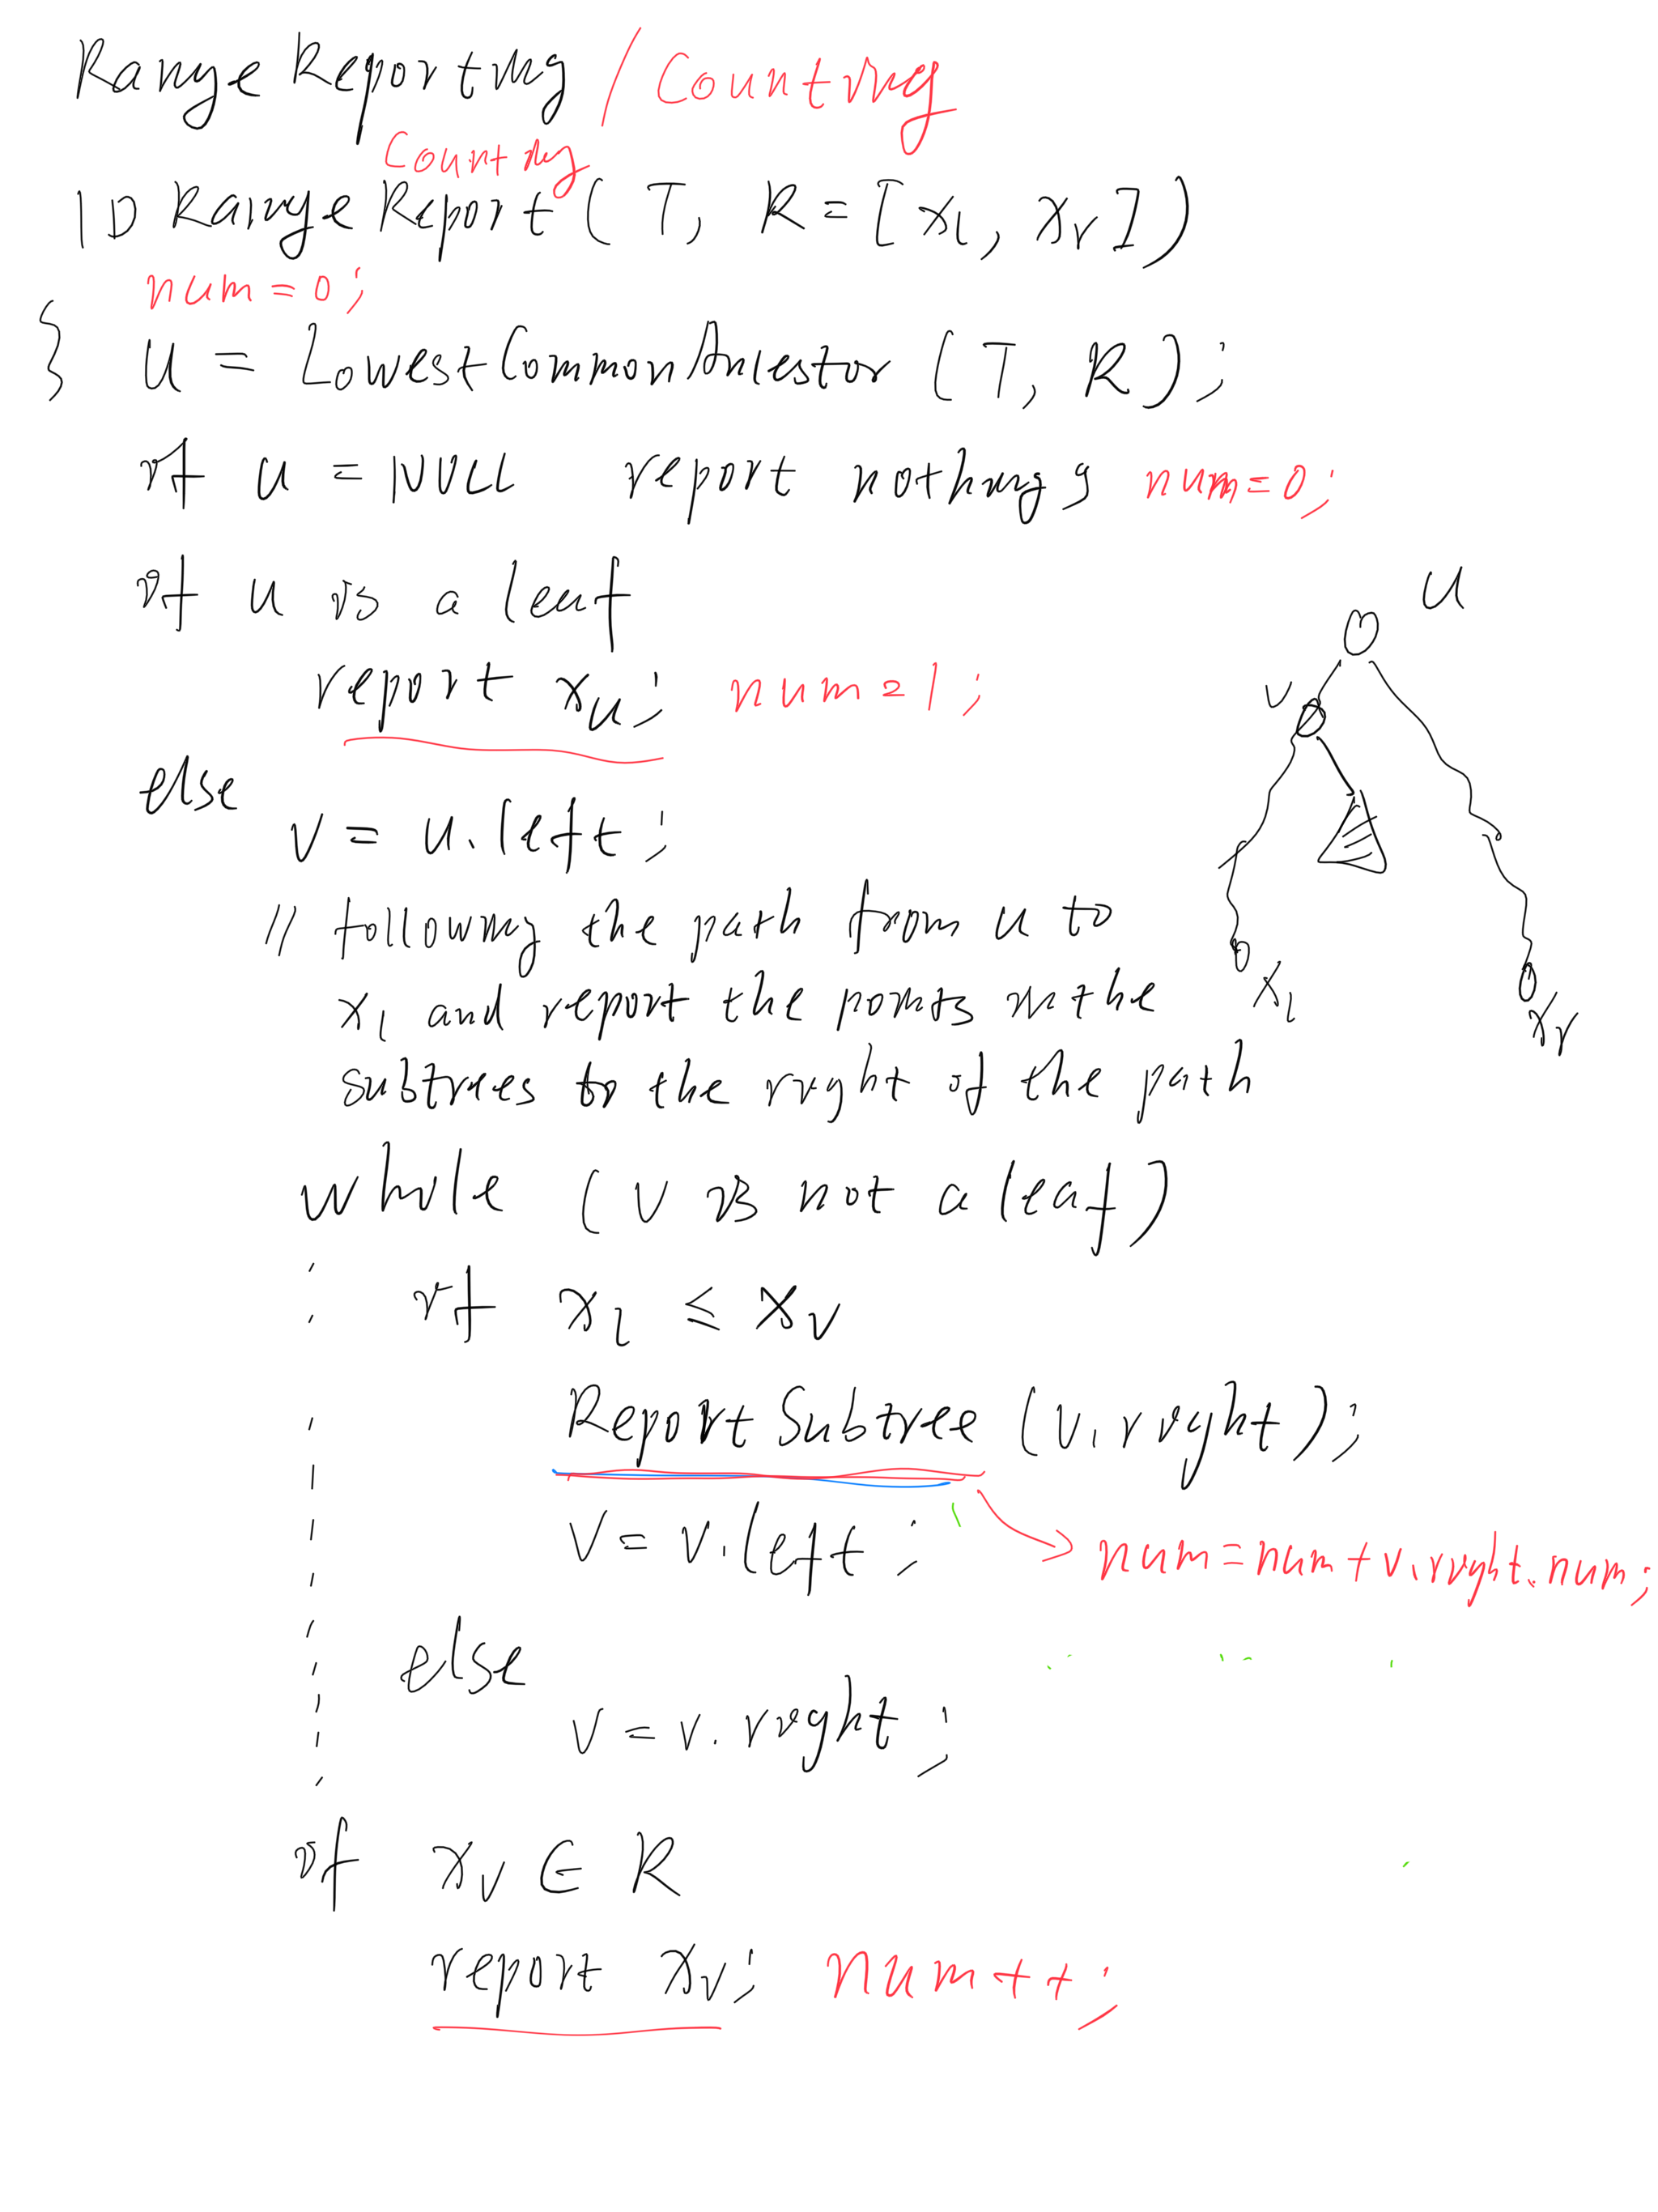 Range Reporting / Counting
Counting
1D Range Report ( T, R = [ x_l, x_r ] )
num = 0 ;
{ u = LowestCommonAncestor ( T, R ) ;
if u = NULL report nothing ; num = 0 ;
if u is a leaf
report x_u ; num = 1 ;
else
v = u.left ;
// following the path from u to
x_l and report the points in the
subtrees to the right of the path
while ( v is not a leaf )
if x_l ≤ x_v
Report Subtree ( v.right ) ;
v = v.left ;
num = num + v.right.num ;
else
v = v.right ;
if x_v ∈ R
report x_v ; num++ ;
u
v
x_l
x_r